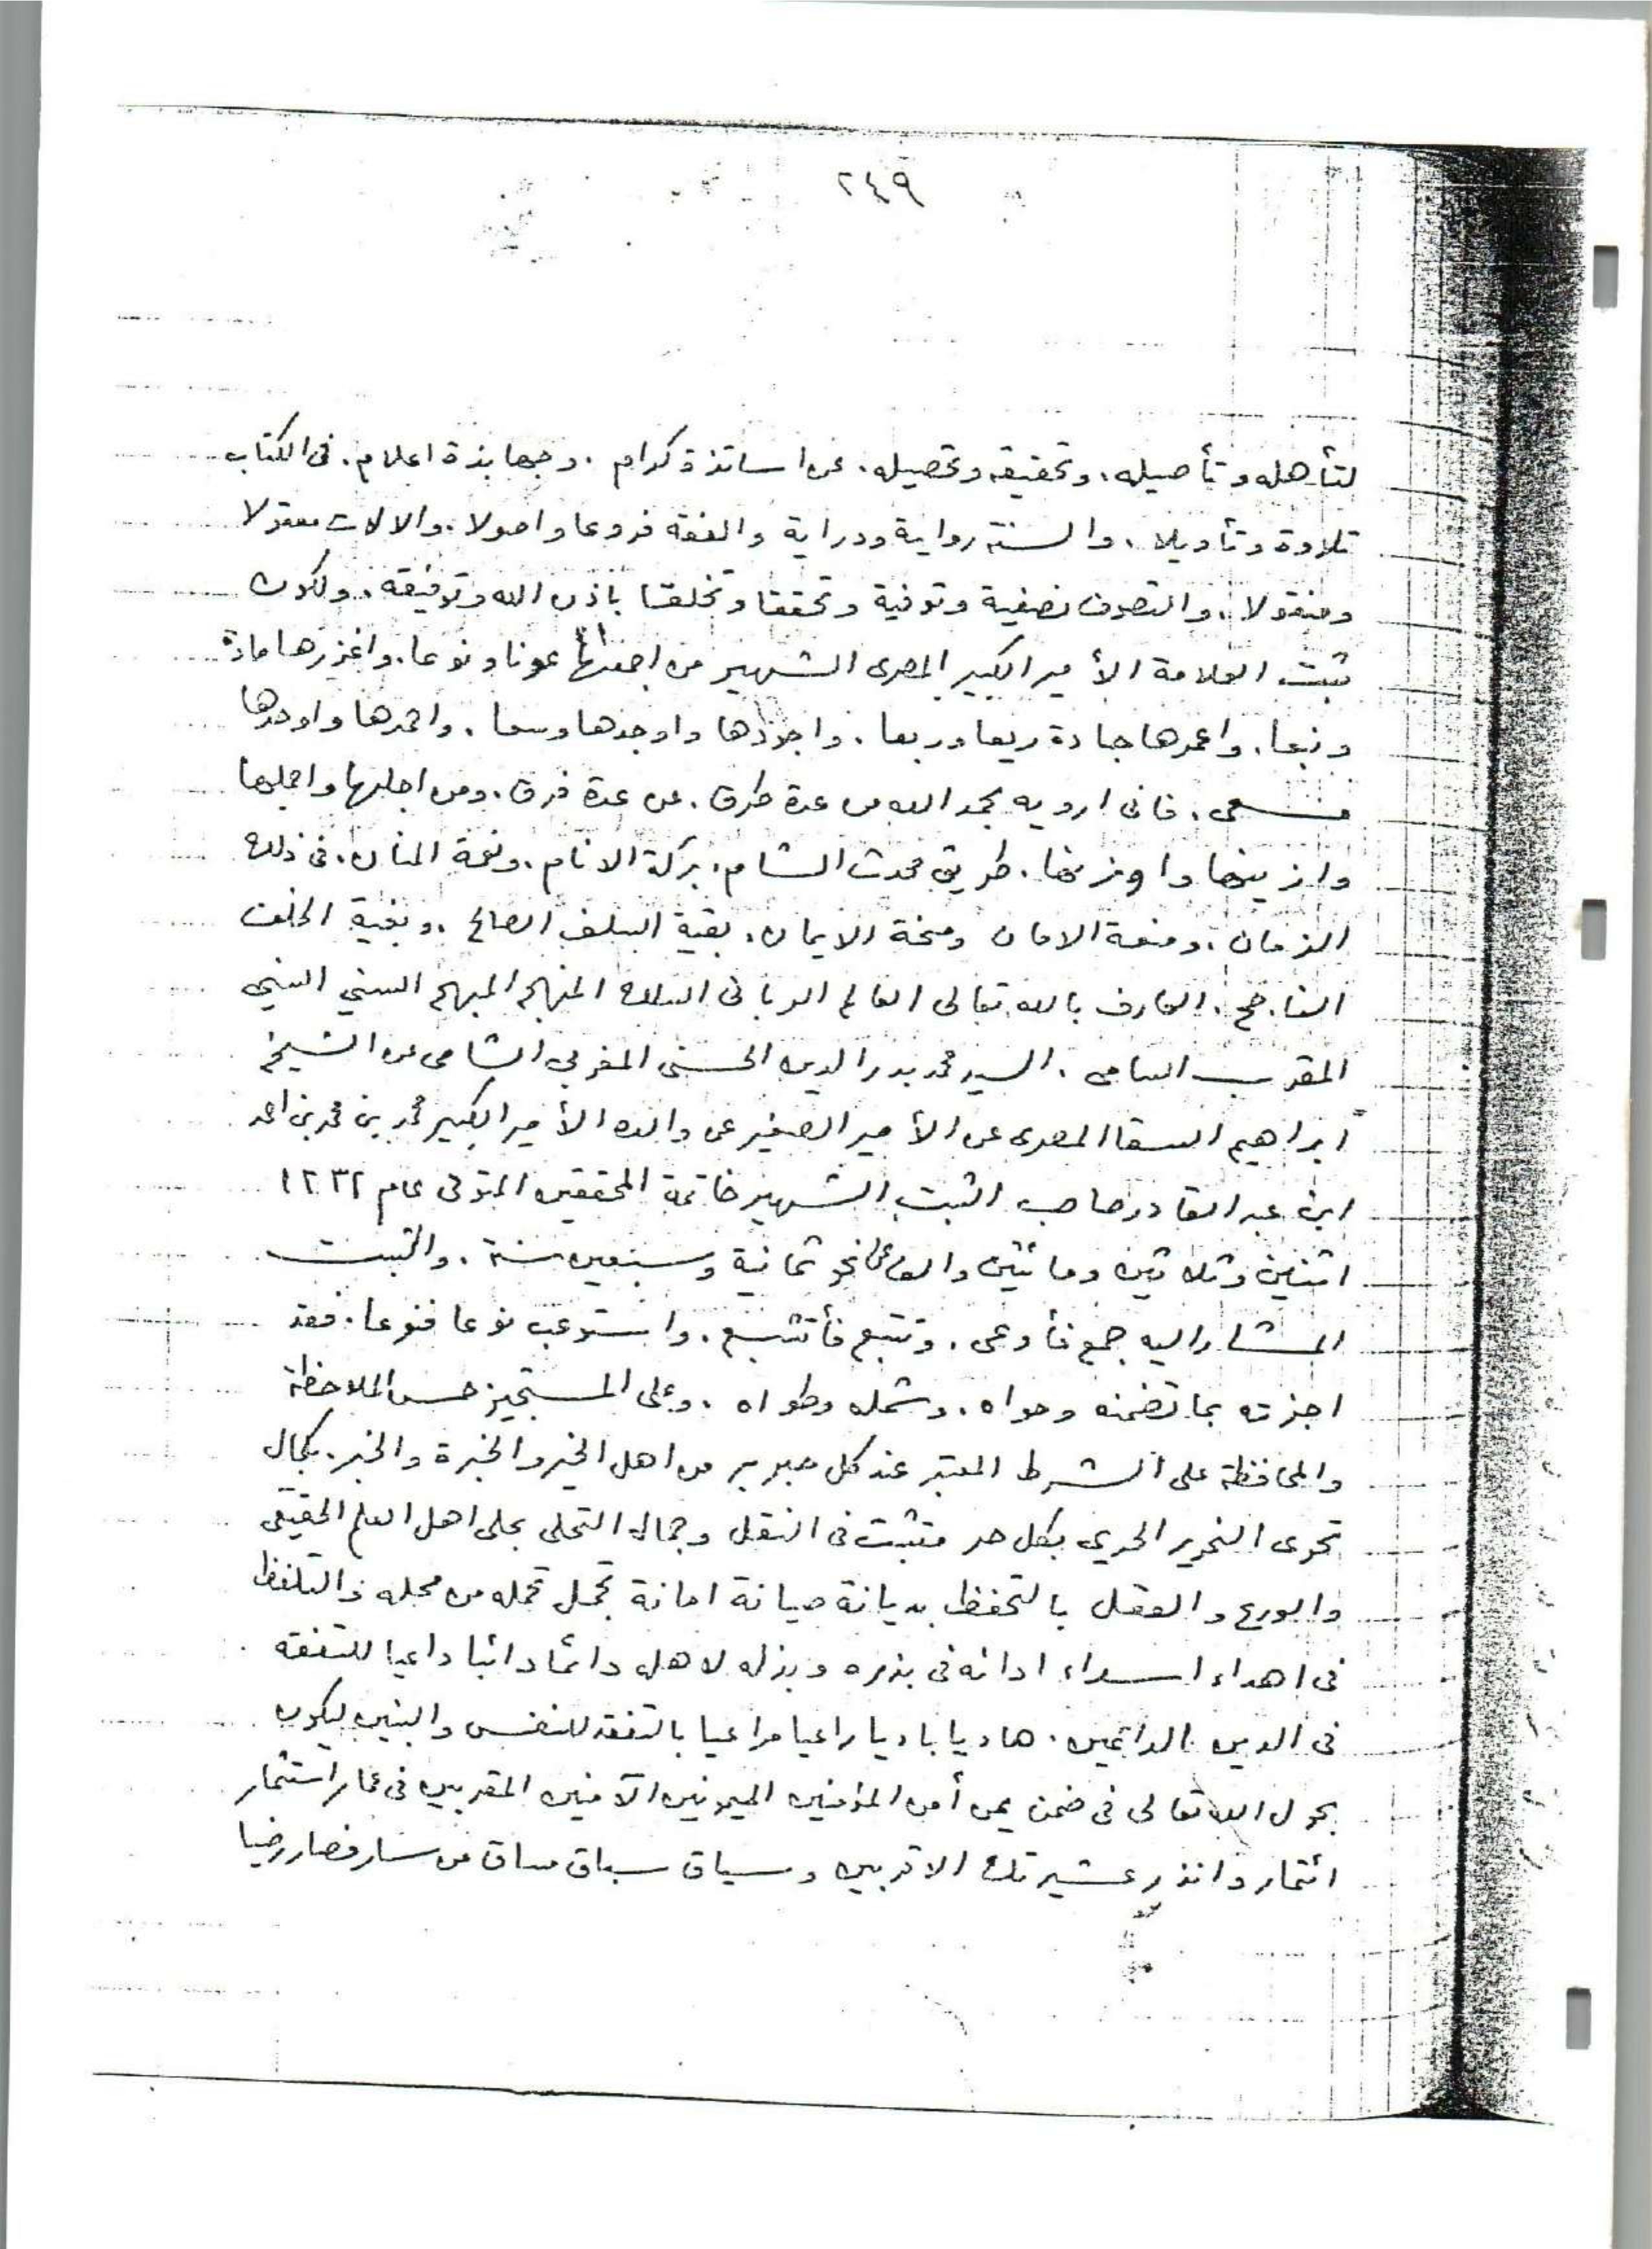 ٢٤٩
لتأهله وتأصيله، وتحقيقه وتحصيله. عن اساتذة كرام. وجهابذة اعلام. فى الكتاب
تلاوة وتأويلا، والسنة رواية ودراية والفقه فروعا واصولا. والالات معقولا
ومنقولا، والتصوف تصفية وتوفية وتحققا وتخلقا باذن الله وتوفيقه. ولكون
ثبت العلامة الأمير الكبير المصرى الشهير من اجمعها عونا ونوعا. واغزرها مادة
ونبعا. واعمرها جادة ريعا وربعا. واجودها واوجدها وسعا. واحمدها واوحدها
مسعى. فانى ارويه بحمد الله من عدة طرق. عن عدة فرق. ومن اجلها واجملها
وازينها. طريق محدث الشام، بركة الانام. ونعمة المنان. فى ذلك
الزمان. ومنعة الامان ومنحة الايمان، بقية السلف الصالح. وبغية الخلف
الناجح. العارف بالله تعالى العالم الربانى السالك المنهج المبهج السنى السنى
المقرب السامى. السيد محمد بدر الدين الحسنى المغربي الشامى عن الشيخ
ابراهيم السقا المصرى عن الأمير الصغير عن والده الأمير الكبير محمد بن محمد بن احمد
ابن عبد القادر صاحب الثبت الشهير خاتمة المحققين المتوفى عام ١٢٣٢
اثنين وثلاثين ومائتين والف عن نحو ثمانية وسبعين سنة. والثبت
المشار اليه جمع فأوعى. وتتبع فأتسع. واستوعب نوعا فنوعا. فقد
اجزته بما تضمنه وحواه. وشمله وطواه. وعلى المستجيز حسن الملاحظة
والمحافظة على الشرط المعتبر عند كل من اهل الخير والخبرة والخبر. بكمال
تحرى النحرير الحرى بكل حر متثبت فى النقل وجمال التحلى بحلى اهل العلم الحقيقى
والورع والعقل بالتحفظ بديانة صيانة امانة تحمل تحمله من محله والتلفظ
فى اهداء اسداء ادائه فى بذره وبذله لاهله دائما دائبا داعيا للتفقه
فى الدين الدائمين. هاديا باديا راعيا مراعيا بالتفقد للنفس والبنين ليكون
بحول الله تعالى فى ضمن يمن أمن المؤمنين الميمونين الآمنين المقربين فى ثمار استثمار
ائتمار وانذر عشيرتك الاقربين وسياق سباق مساق من سار فصار رضيا